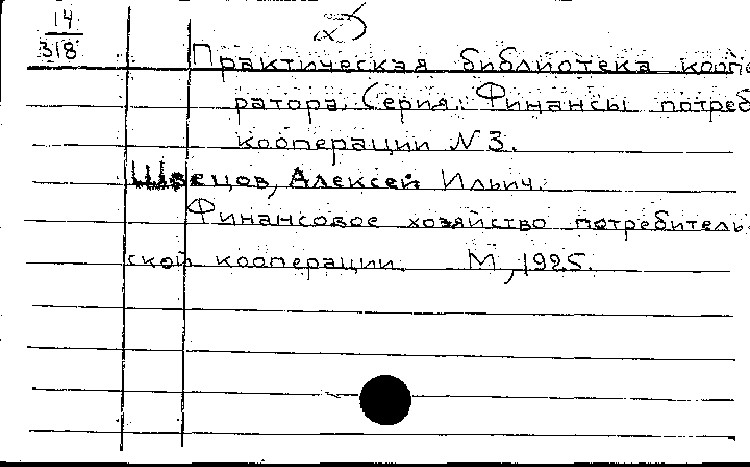 14
318
Практическая библиотека коопе
ратора. Серия: Финансы потреб
кооперации N 3.
Швецов, Алексей Ильич.
Финансовое хозяйство потребитель-
ской кооперации. М, 1925.